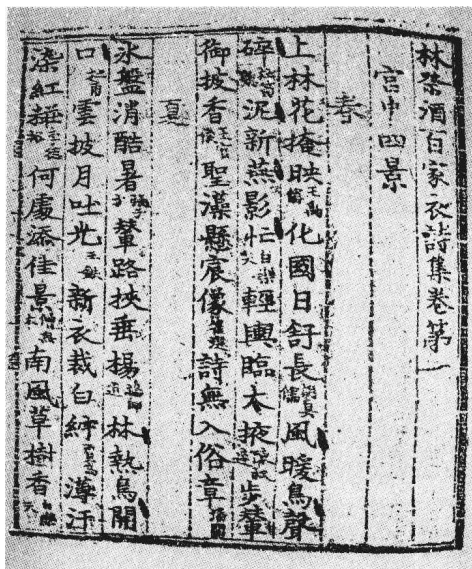 林祭酒百家衣詩集卷第一
宮中四景
春
上林花掩映化國日舒長風暖鳥聲
碎泥新燕影忙白樂天輕輿臨太掖步輦
御披香聖藻懸宸像詩無入俗章
夏
氷盤消酷暑輦路挾垂楊林熱鳥開
口雲披月吐光新衣裁白紵薄汗
染紅粧何處添佳景南風草樹香